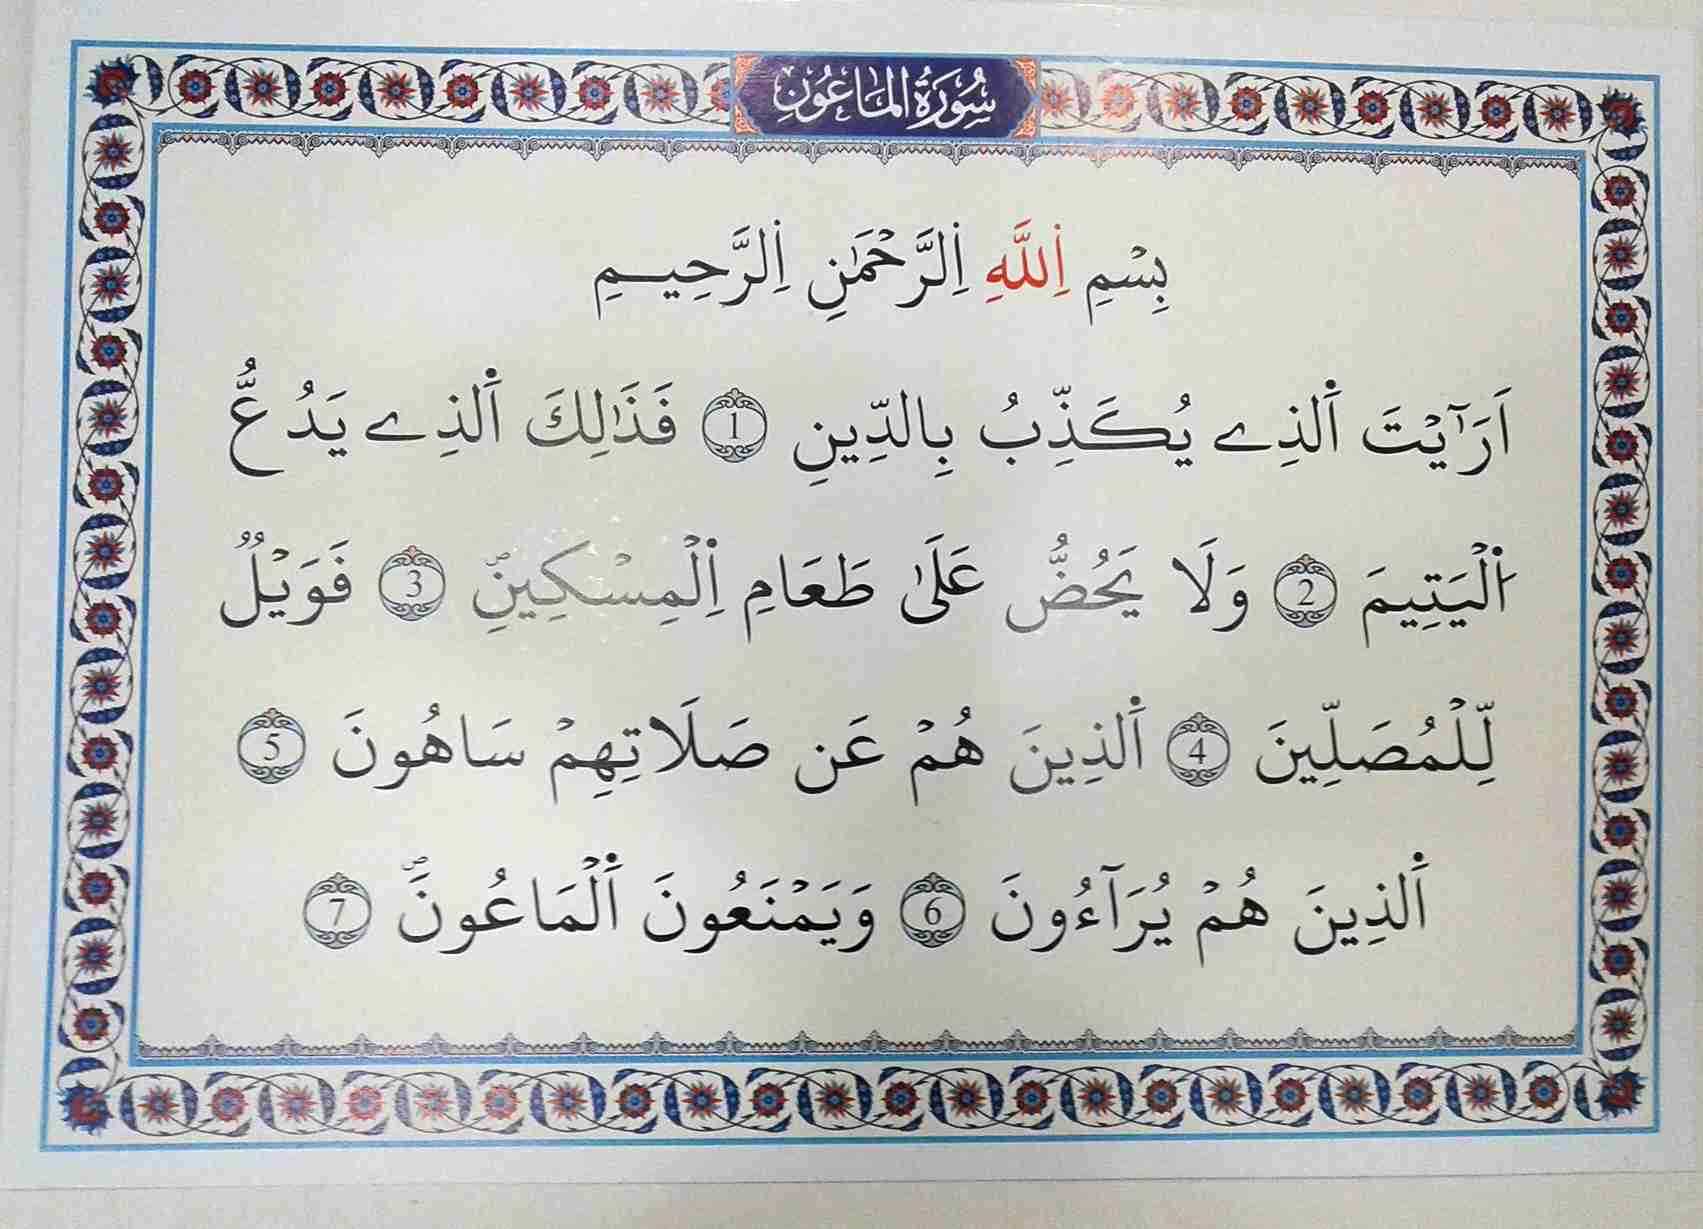 سُورَةُ المَاعُونِ
بِسْمِ اِ۬للَّهِ اِ۬لرَّحْمَٰنِ اِ۬لرَّحِيمِ
اَرَٰٓيْتَ اَ۬لذِے يُكَذِّبُ بِالدِّينِ 1 فَذَٰلِكَ اَ۬لذِے يَدُعُّ
اُ۬لْيَتِيمَ 2 وَلَا يَحُضُّ عَلَىٰ طَعَامِ اِ۬لْمِسْكِينِۖ 3 فَوَيْلٞ
لِّلْمُصَلِّينَ 4 اَ۬لذِينَ هُمْ عَن صَلَاتِهِمْ سَاهُونَ 5
اَ۬لذِينَ هُمْ يُرَآءُونَ 6 وَيَمْنَعُونَ اَ۬لْمَاعُونَۖ 7